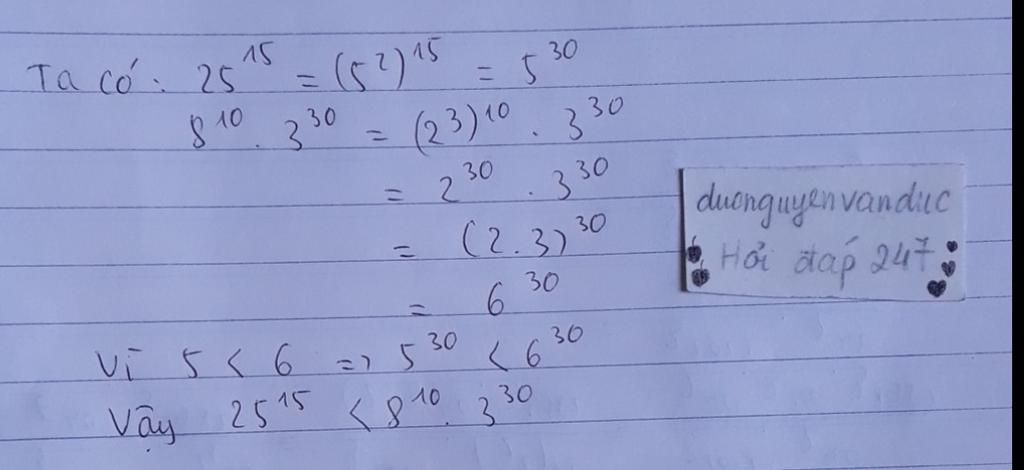 Ta có: 25^15 = (5^2)^15 = 5^30
8^10 . 3^30 = (2^3)^10 . 3^30
= 2^30 . 3^30
= (2.3)^30
= 6^30
Vì 5 < 6 => 5^30 < 6^30
Vậy 25^15 < 8^10 . 3^30
duonguyenvanduc
Hỏi đáp 247